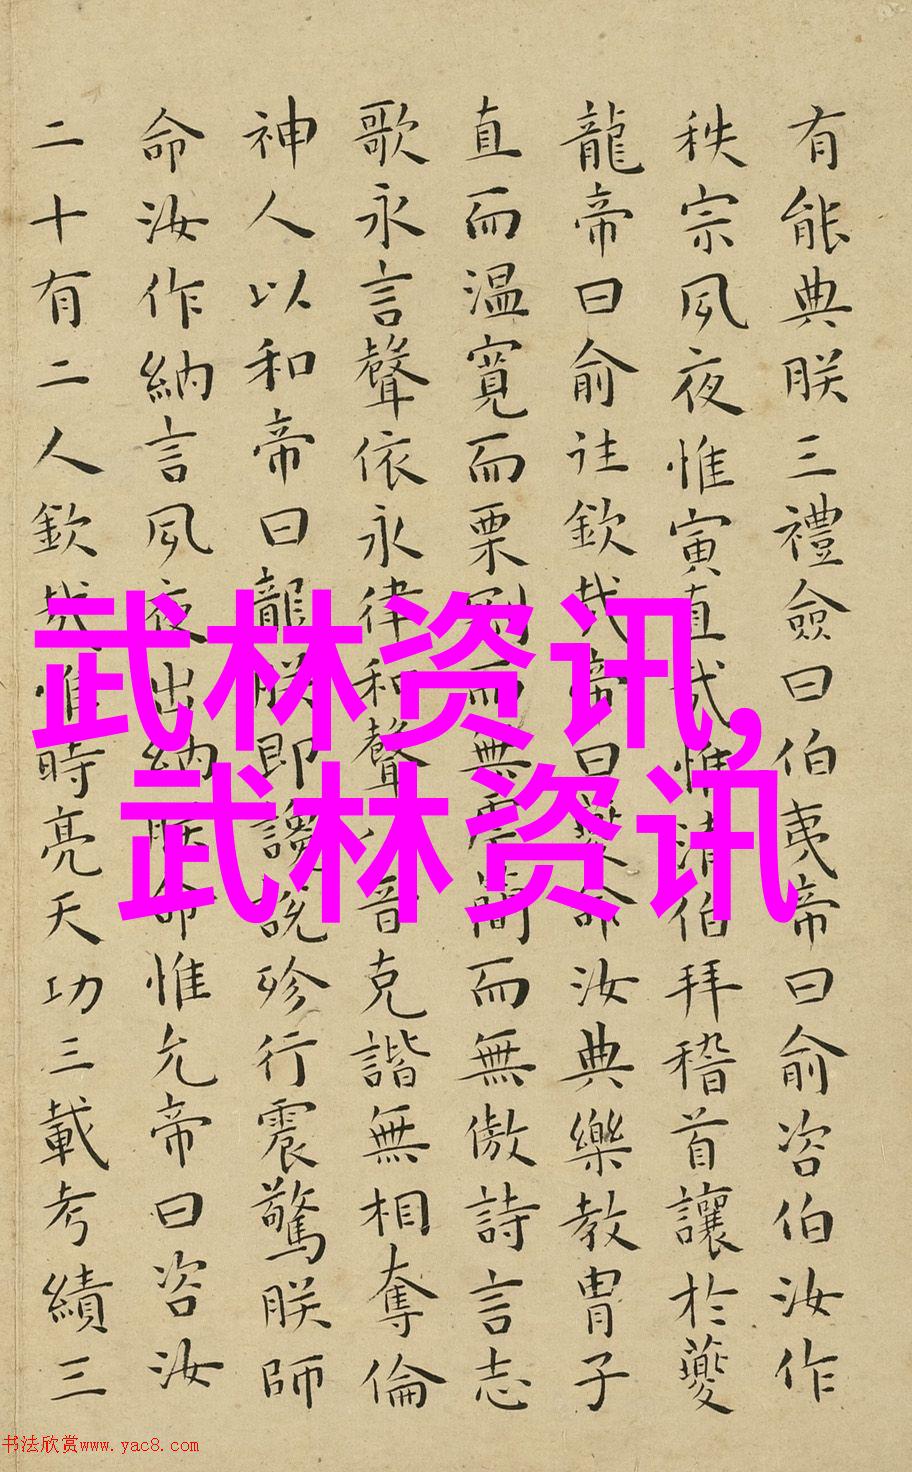 有能典朕三禮僉曰伯夷帝曰俞咨伯汝作
秩宗夙夜惟寅直哉惟清伯拜稽首讓於夔
龍帝曰俞往欽哉帝曰夔命汝典樂教冑子
直而温寬而栗剛而無虐簡而無傲詩言志
歌永言聲依永律和聲音克諧無相奪倫
神人以和帝曰龍朕即讒說殄行震驚朕師
命汝作納言夙夜出納朕命惟允帝曰咨汝
二十有二人欽哉惟時亮天功三載考績三
武林资讯,
武林资讯
书法欣赏www.yac8.com